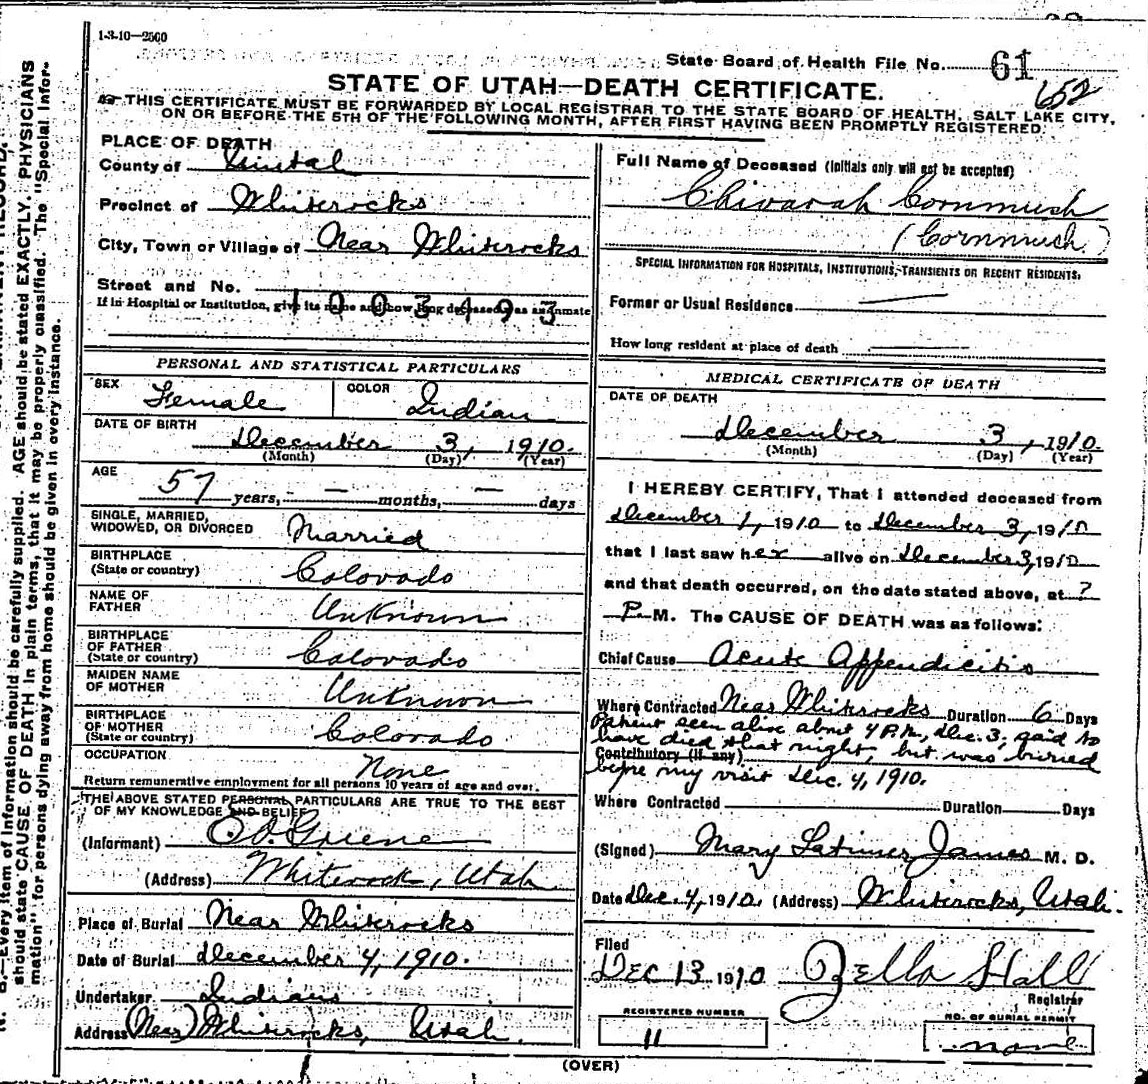 1-3-10—2500
State Board of Health File No. 61
652
STATE OF UTAH—DEATH CERTIFICATE.
THIS CERTIFICATE MUST BE FORWARDED BY LOCAL REGISTRAR TO THE STATE BOARD OF HEALTH, SALT LAKE CITY,
ON OR BEFORE THE 5TH OF THE FOLLOWING MONTH, AFTER FIRST HAVING BEEN PROMPTLY REGISTERED.
PLACE OF DEATH
County of Uintah
Precinct of Whiterocks
City, Town or Village of Near Whiterocks
Street and No.
1003493
If in Hospital or Institution, give its name and how long deceased was an inmate
PERSONAL AND STATISTICAL PARTICULARS
SEX Female COLOR Indian
DATE OF BIRTH
December 3, 1910.
(Month) (Day) (Year)
AGE
57 years, — months, — days
SINGLE, MARRIED,
WIDOWED, OR DIVORCED Married
BIRTHPLACE
(State or country) Colorado
NAME OF
FATHER Unknown
BIRTHPLACE
OF FATHER
(State or country) Colorado
MAIDEN NAME
OF MOTHER Unknown
BIRTHPLACE
OF MOTHER
(State or country) Colorado
OCCUPATION None
Return remunerative employment for all persons 10 years of age and over.
THE ABOVE STATED PERSONAL PARTICULARS ARE TRUE TO THE BEST
OF MY KNOWLEDGE AND BELIEF
(Informant) Griene
(Address) Whiterock, Utah
Place of Burial Near Whiterocks
Date of Burial December 4, 1910.
Undertaker Indians
Address (Near) Whiterocks, Utah.
Full Name of Deceased (Initials only will not be accepted)
Chivarah Cornmush
(Cornmuch)
SPECIAL INFORMATION FOR HOSPITALS, INSTITUTIONS, TRANSIENTS OR RECENT RESIDENTS.
Former or Usual Residence
How long resident at place of death
MEDICAL CERTIFICATE OF DEATH
DATE OF DEATH
December 3, 1910.
(Month) (Day) (Year)
I HEREBY CERTIFY, That I attended deceased from
December 1, 1910 to December 3, 1910
that I last saw her alive on December 3, 1910
and that death occurred, on the date stated above, at ?
P. M. The CAUSE OF DEATH was as follows:
Chief Cause Acute Appendicitis
Where Contracted Near Whiterocks Duration 6 Days
Patient seen alive about 4 P.M., Dec. 3; said to
have died that night, but was buried
Contributory (if any)
before my visit Dec. 4, 1910.
Where Contracted Duration Days
(Signed) Mary Latimer James M. D.
Date Dec. 4, 1910. (Address) Whiterocks, Utah.
Filed
DEC 13 1910 Zella Hall
Registrar
REGISTERED NUMBER
11
NO. OF BURIAL PERMIT
none
(OVER)
B.—Every item of information should be carefully supplied. AGE should be stated EXACTLY. PHYSICIANS
should state CAUSE OF DEATH in plain terms, that it may be properly classified. The "Special Infor-
mation" for persons dying away from home should be given in every instance.